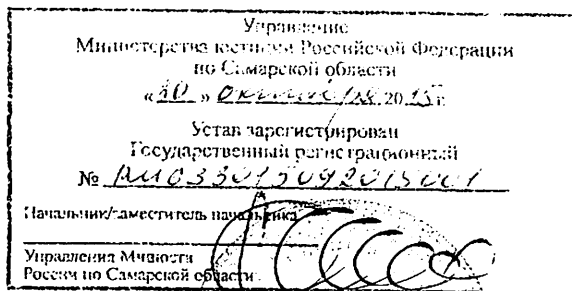 Управление
Министерства юстиции Российской Федерации
по Самарской области
«30» октября 2015 г.
Устав зарегистрирован
Государственный регистрационный
№ RU633015092015001
Начальник/заместитель начальника
Управления Минюста
России по Самарской области